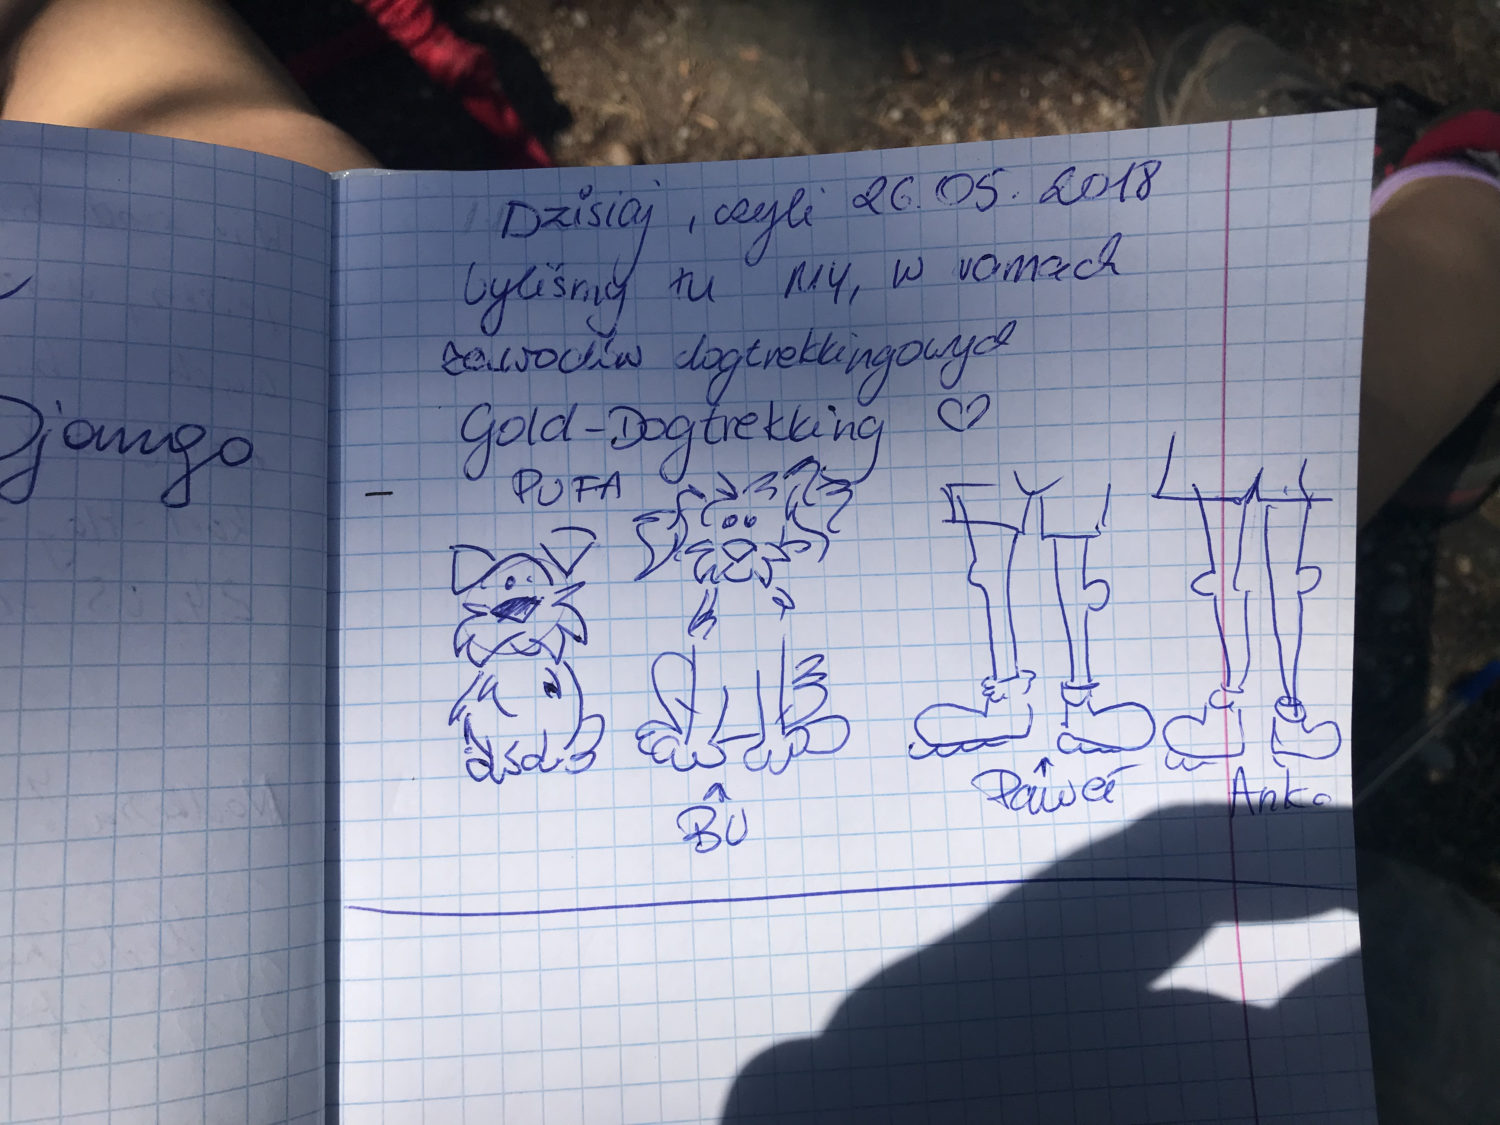 Django
Dzisiaj, czyli 26.05.2018
byliśmy tu MY, w ramach
zawodów dogtrekkingowych
Gold-Dogtrekking ♡
PUFA
BU
Paweł
Anka